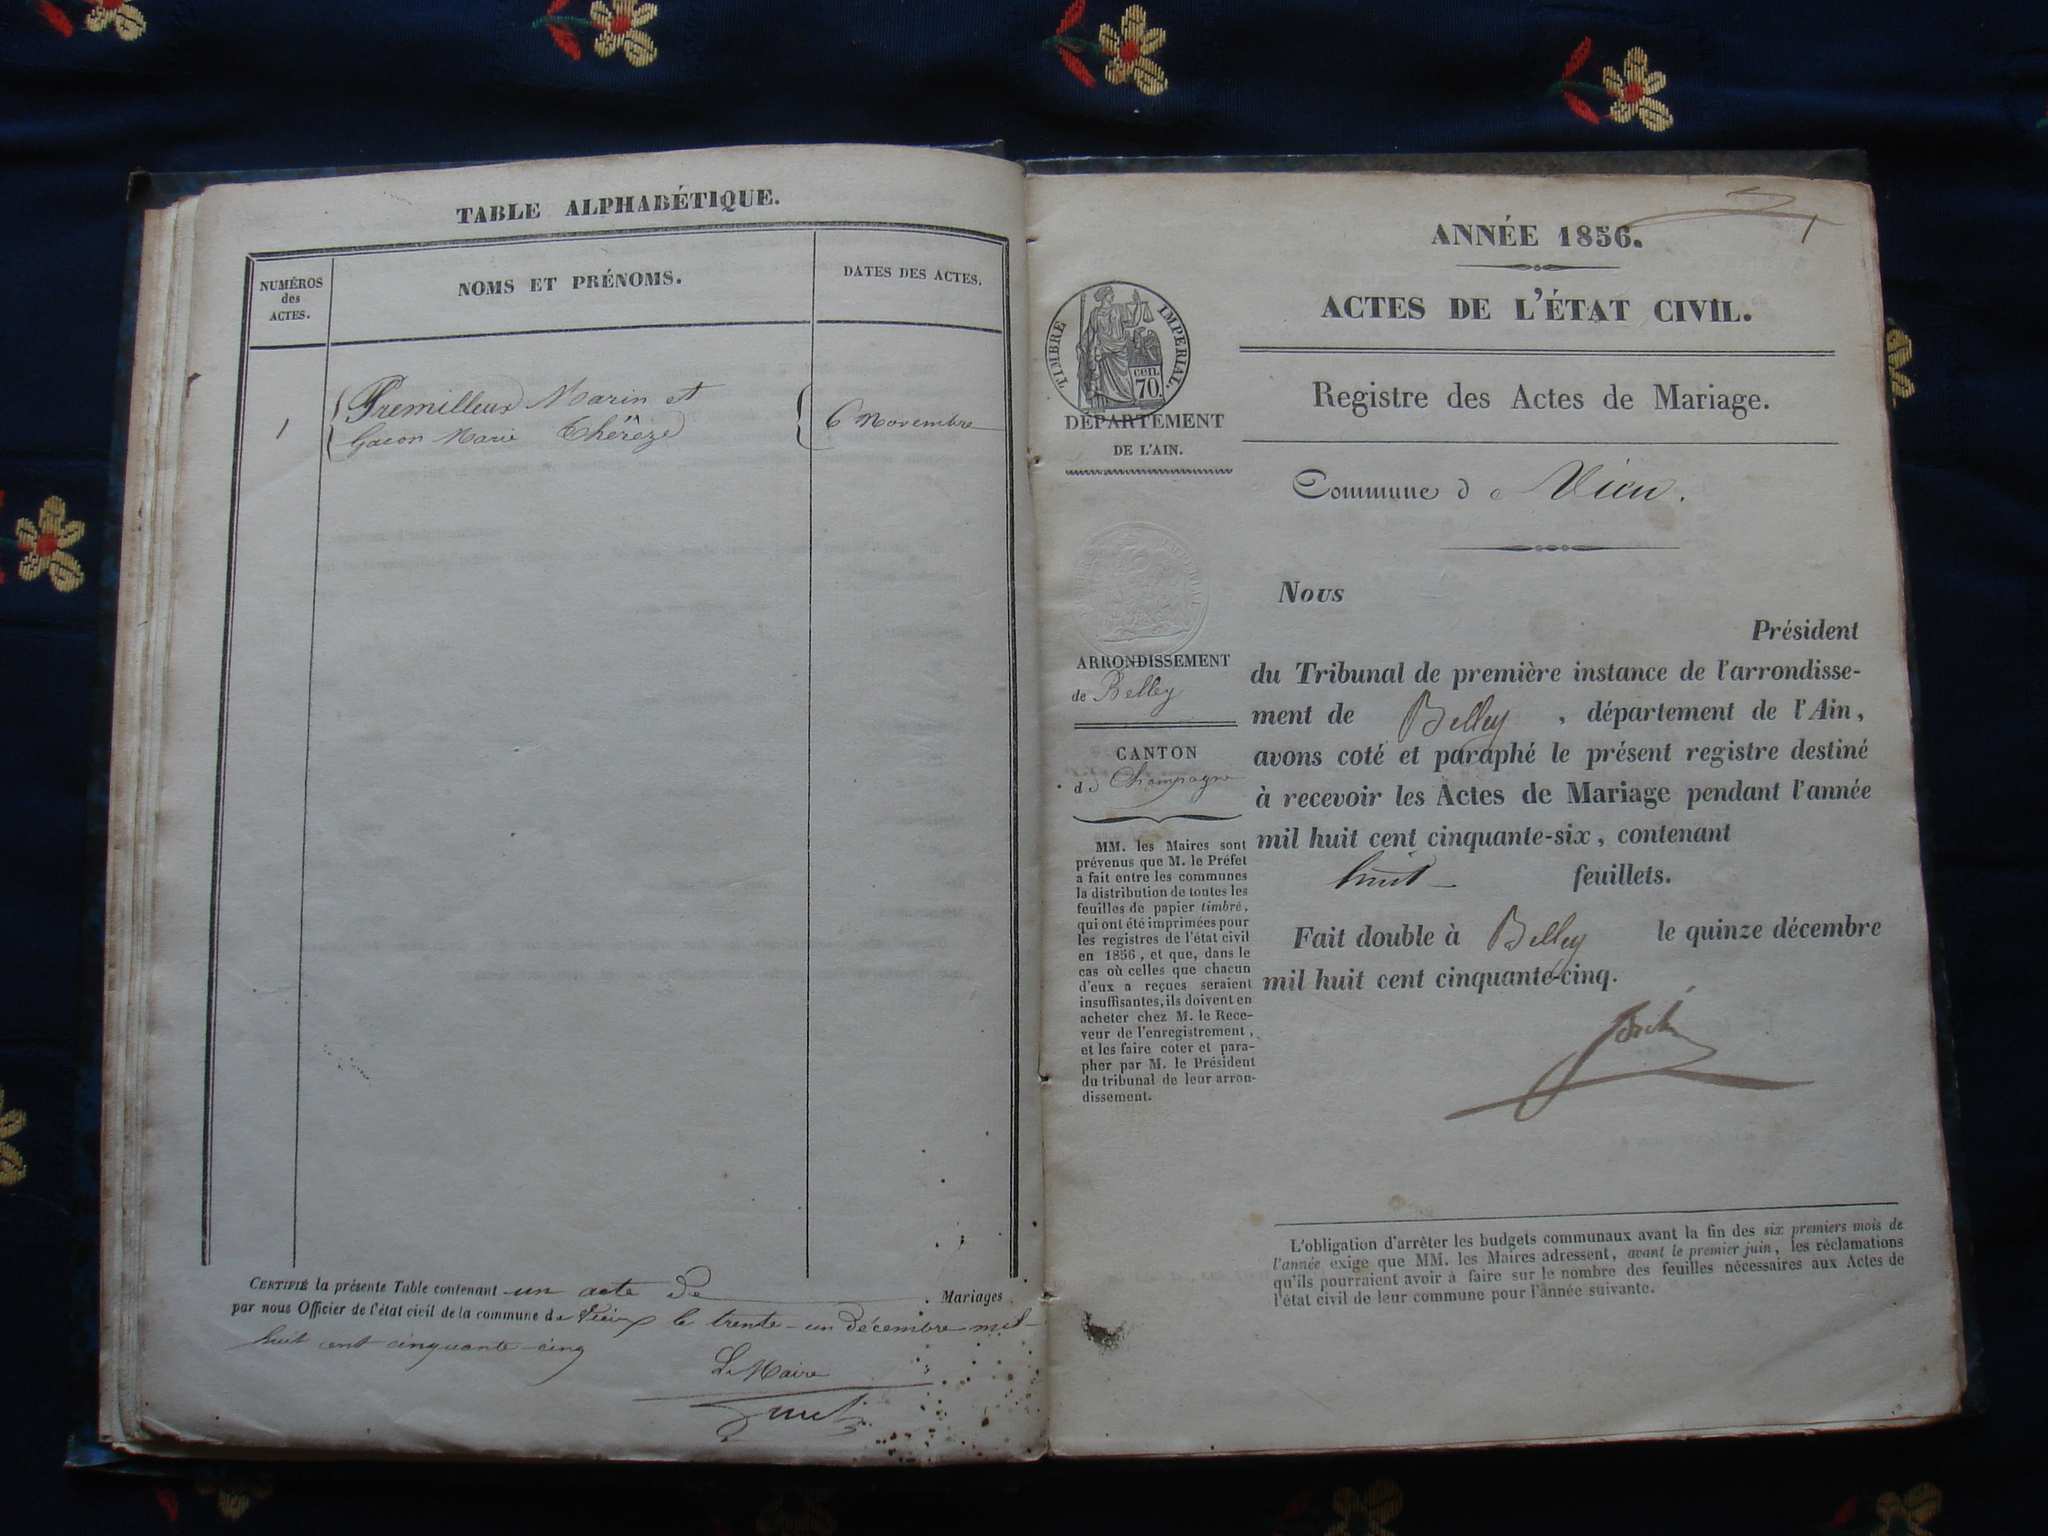 TABLE ALPHABÉTIQUE.
NUMÉROS
des
ACTES.
NOMS ET PRÉNOMS.
DATES DES ACTES.
1
Premilleux Marin et
Gacon Marie Thérèze
6 Novembre
CERTIFIÉ la présente Table contenant un acte de Mariages
par nous Officier de l'état civil de la commune de Vieu le trente-un décembre mil
huit cent cinquante-cinq
Le Maire
ANNÉE 1856.
1
ACTES DE L'ÉTAT CIVIL.
TIMBRE IMPERIAL.
CEN.
70.
DÉPARTEMENT
DE L'AIN.
Registre des Actes de Mariage.
Commune de Vieu.
ARRONDISSEMENT
de Belley
CANTON
de Champagne
MM. les Maires sont
prévenus que M. le Préfet
a fait entre les communes
la distribution de toutes les
feuilles de papier timbré,
qui ont été imprimées pour
les registres de l'état civil
en 1856, et que, dans le
cas où celles que chacun
d'eux a reçues seraient
insuffisantes, ils doivent en
acheter chez M. le Rece-
veur de l'enregistrement,
et les faire coter et para-
pher par M. le Président
du tribunal de leur arron-
dissement.
Nous
Président
du Tribunal de première instance de l'arrondisse-
ment de Belley, département de l'Ain,
avons coté et paraphé le présent registre destiné
à recevoir les Actes de Mariage pendant l'année
mil huit cent cinquante-six, contenant
huit feuillets.
Fait double à Belley le quinze décembre
mil huit cent cinquante-cinq.
L'obligation d'arrêter les budgets communaux avant la fin des six premiers mois de
l'année exige que MM. les Maires adressent, avant le premier juin, les réclamations
qu'ils pourraient avoir à faire sur le nombre des feuilles nécessaires aux Actes de
l'état civil de leur commune pour l'année suivante.